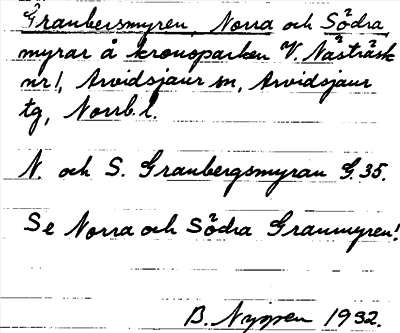 Granbersmyren, Norra och Södra,
myrar å kronoparken V. Nåsträsk
nr 1, Arvidsjaur sn, Arvidsjaur
tg, Norrb. l.
N. och S. Granbergsmyran G. 35.
Se Norra och Södra Granmyren!
B. Nyman 1932.